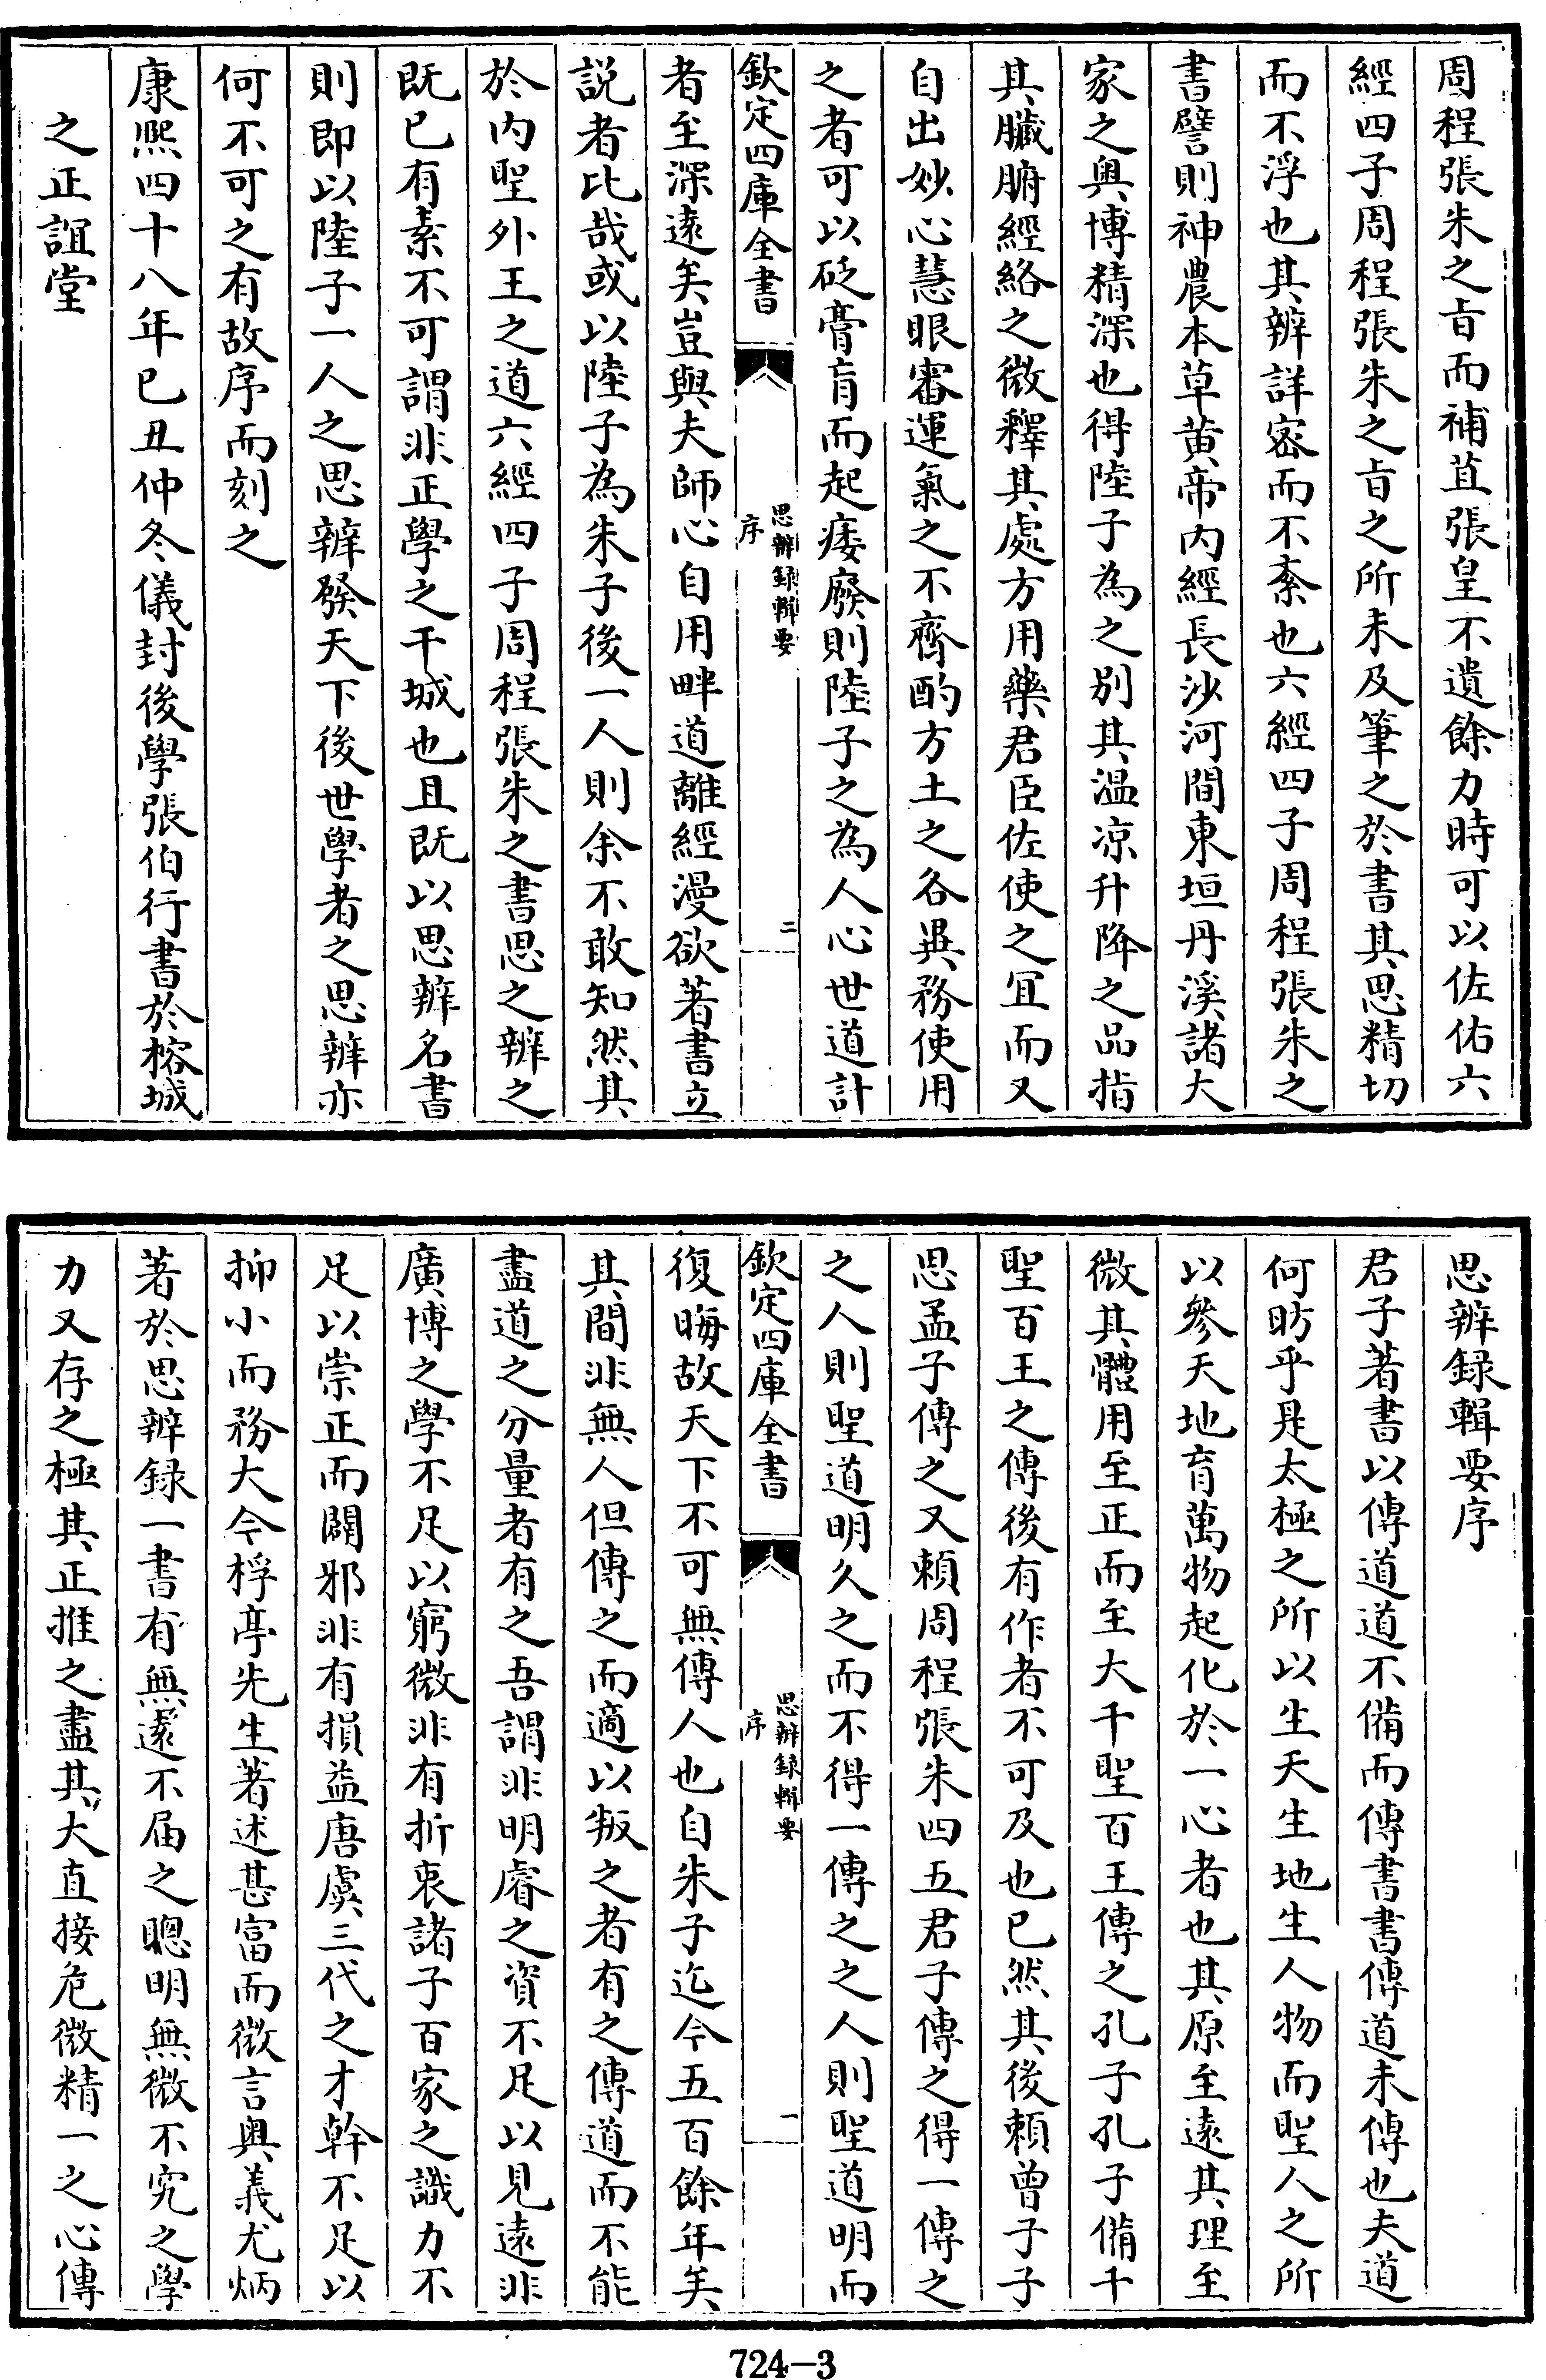 周程張朱之㫖而補苴張皇不遺餘力時可以佐佑六
經四子周程張朱之㫖之所未及筆之於書其思精切
而不浮也其辨詳密而不紊也六經四子周程張朱之
書譬則神農本草黄帝内經長沙河間東垣丹溪諸大
家之奥博精深也得陸子為之别其温凉升降之品指
其臟腑經絡之微釋其處方用藥君臣佐使之宜而又
自出妙心慧眼審運氣之不齊酌方土之各異務使用
之者可以砭膏肓而起痿廢則陸子之為人心世道計
欽定四庫全書
思辨録輯要
序
二
者至深逺矣豈與夫師心自用畔道離經漫欲著書立
説者比哉或以陸子為朱子後一人則余不敢知然其
於内聖外王之道六經四子周程張朱之書思之辨之
既已有素不可謂非正學之干城也且既以思辨名書
則即以陸子一人之思辨發天下後世學者之思辨亦
何不可之有故序而刻之
康熙四十八年已丑仲冬儀封後學張伯行書於榕城
之正誼堂
思辨録輯要序
君子著書以傳道道不備而傳書書傳道未傳也夫道
何昉乎是太極之所以生天生地生人物而聖人之所
以參天地育萬物起化於一心者也其原至逺其理至
微其體用至正而至大千聖百王傳之孔子孔子備千
聖百王之傳後有作者不可及也已然其後賴曾子子
思孟子傳之又賴周程張朱四五君子傳之得一傳之
之人則聖道明久之而不得一傳之之人則聖道明而
欽定四庫全書
思辨録輯要
序
一
復晦故天下不可無傳人也自朱子迄今五百餘年矣
其間非無人但傳之而適以叛之者有之傳道而不能
盡道之分量者有之吾謂非明睿之資不足以見逺非
廣博之學不足以窮微非有折衷諸子百家之識力不
足以崇正而闢邪非有損益唐虞三代之才幹不足以
抑小而務大今桴亭先生著述甚富而微言奥義尤炳
著於思辨録一書有無逺不届之聰明無微不究之學
力又存之極其正推之盡其大直接危微精一之心傳
724-3